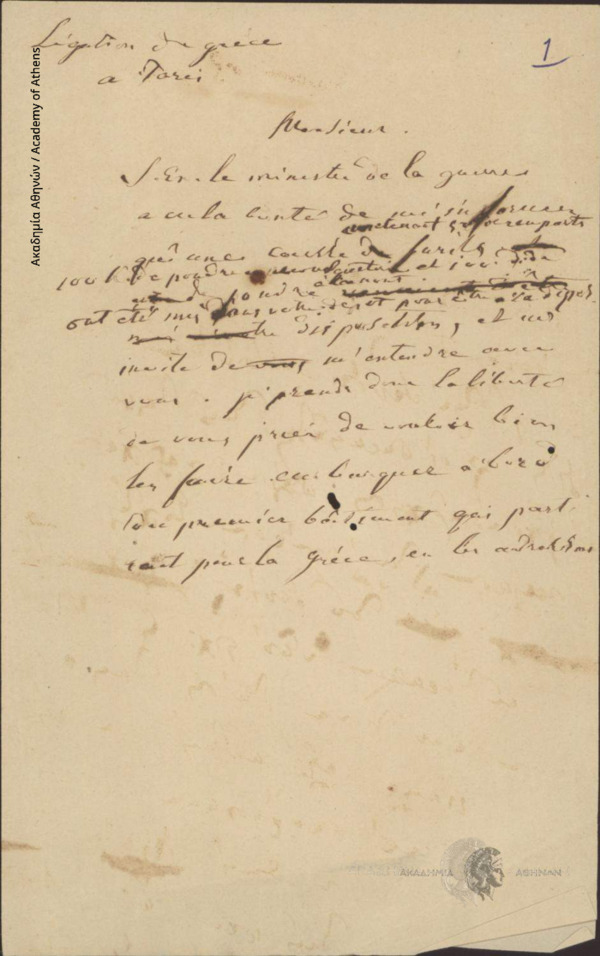 Légation de grèce
a Paris
1
Monsieur.
S. Ex. le ministre de la guerre
a eu la bonté de m'informer
contenant
qu'une caisse de fusils
100 k de poudre et 100
de poudre
ont été mis sous votre dépôt pour être à la dispo-
disposition, et me
invite de vous m'entendre avec
vous. je prends donc la liberté
de vous prier de vouloir bien
les faire embarquer a bord
du premier bâtiment qui parti
rait pour la grèce, en les adressant
Ακαδημία Αθηνών / Academy of Athens
ΑΚΑΔΗΜΙΑ ΑΘΗΝΩΝ